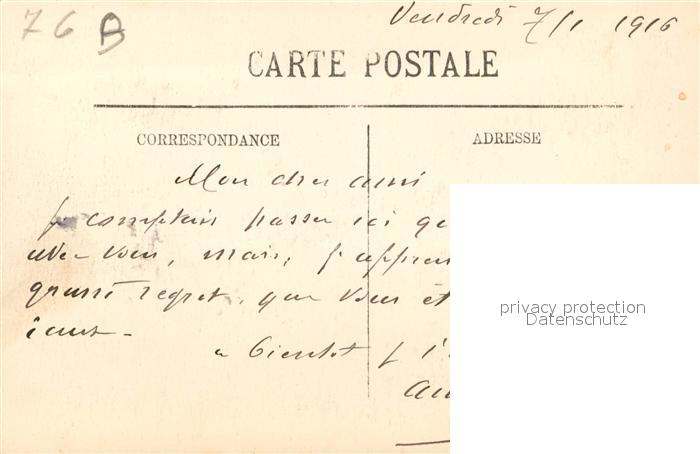 76 B
Vendredi 7/1 1916
CARTE POSTALE
CORRESPONDANCE
ADRESSE
Mon cher ami
je comptais passer ici
avec vous, mais, j'appren
grand regret, que vous
privacy protection
Datenschutz
a bientôt j